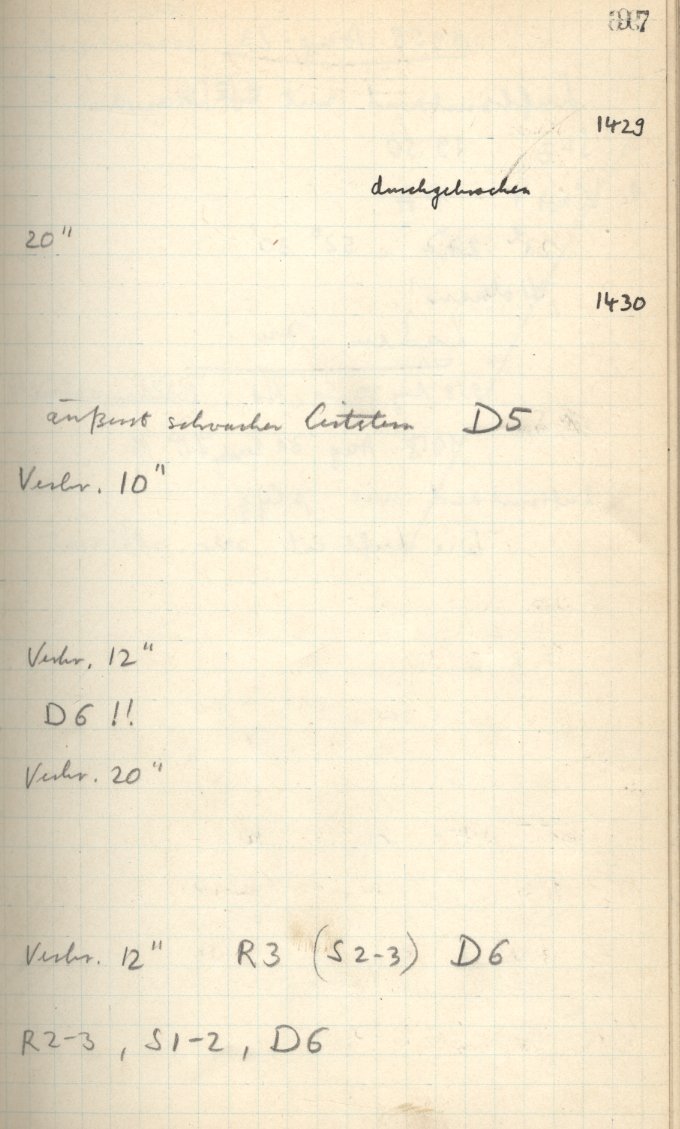 397
1429
durchgebrochen
20"
1430
äußerst schwacher Leitstern D5
Verbr. 10"
Verbr. 12"
D6 !!
Verbr. 20"
Verbr. 12" R3 (S2-3) D6
R2-3, S1-2, D6